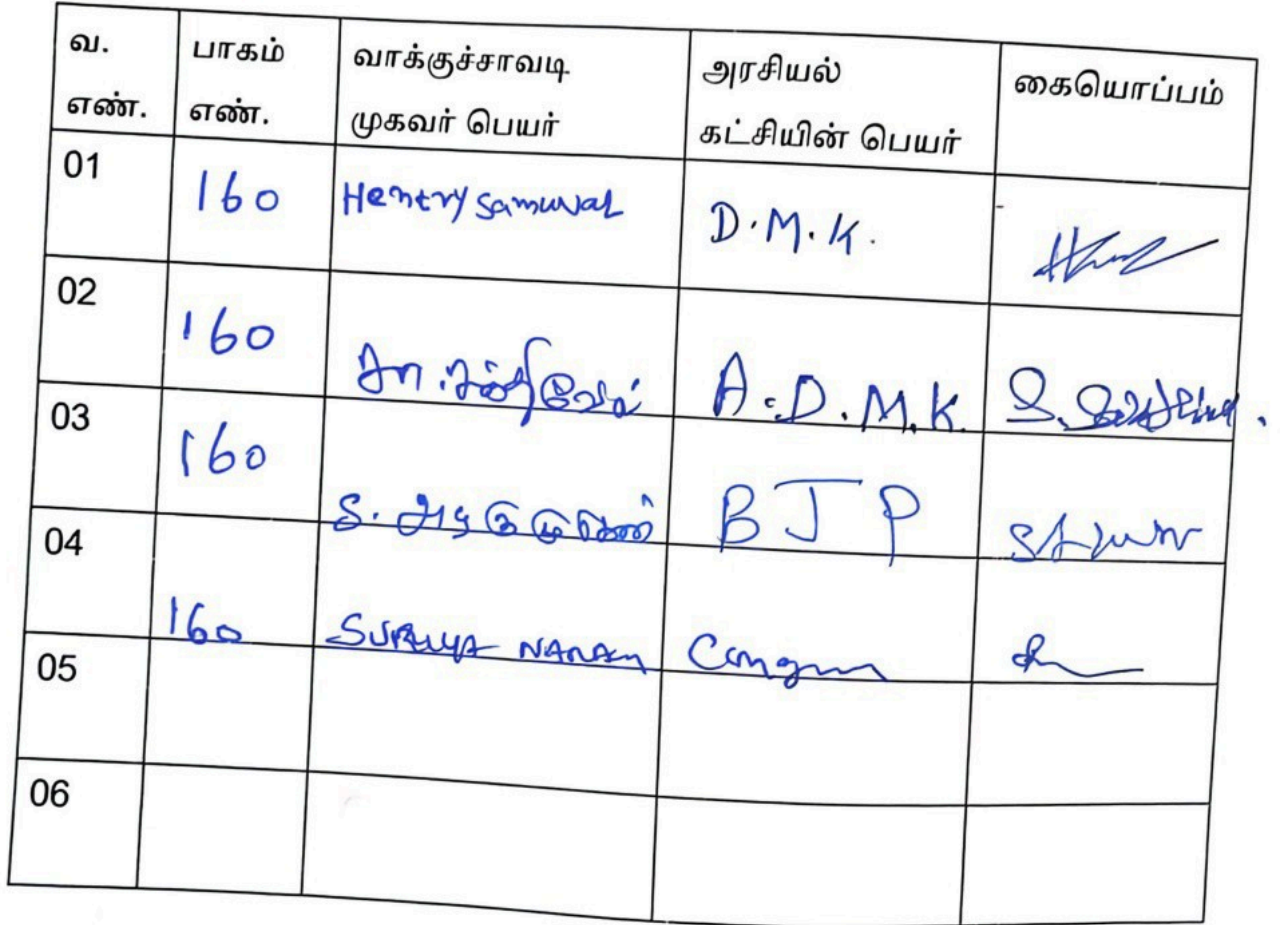 வ. எண். பாகம் எண். வாக்குச்சாவடி முகவர் பெயர் அரசியல் கட்சியின் பெயர் கையொப்பம்
01 160 Hentry Samuval D.M.K.
02 160 A.D.M.K.
03 160 S. BJP
04 160 SURUYA NARAYN Congrss
05
06